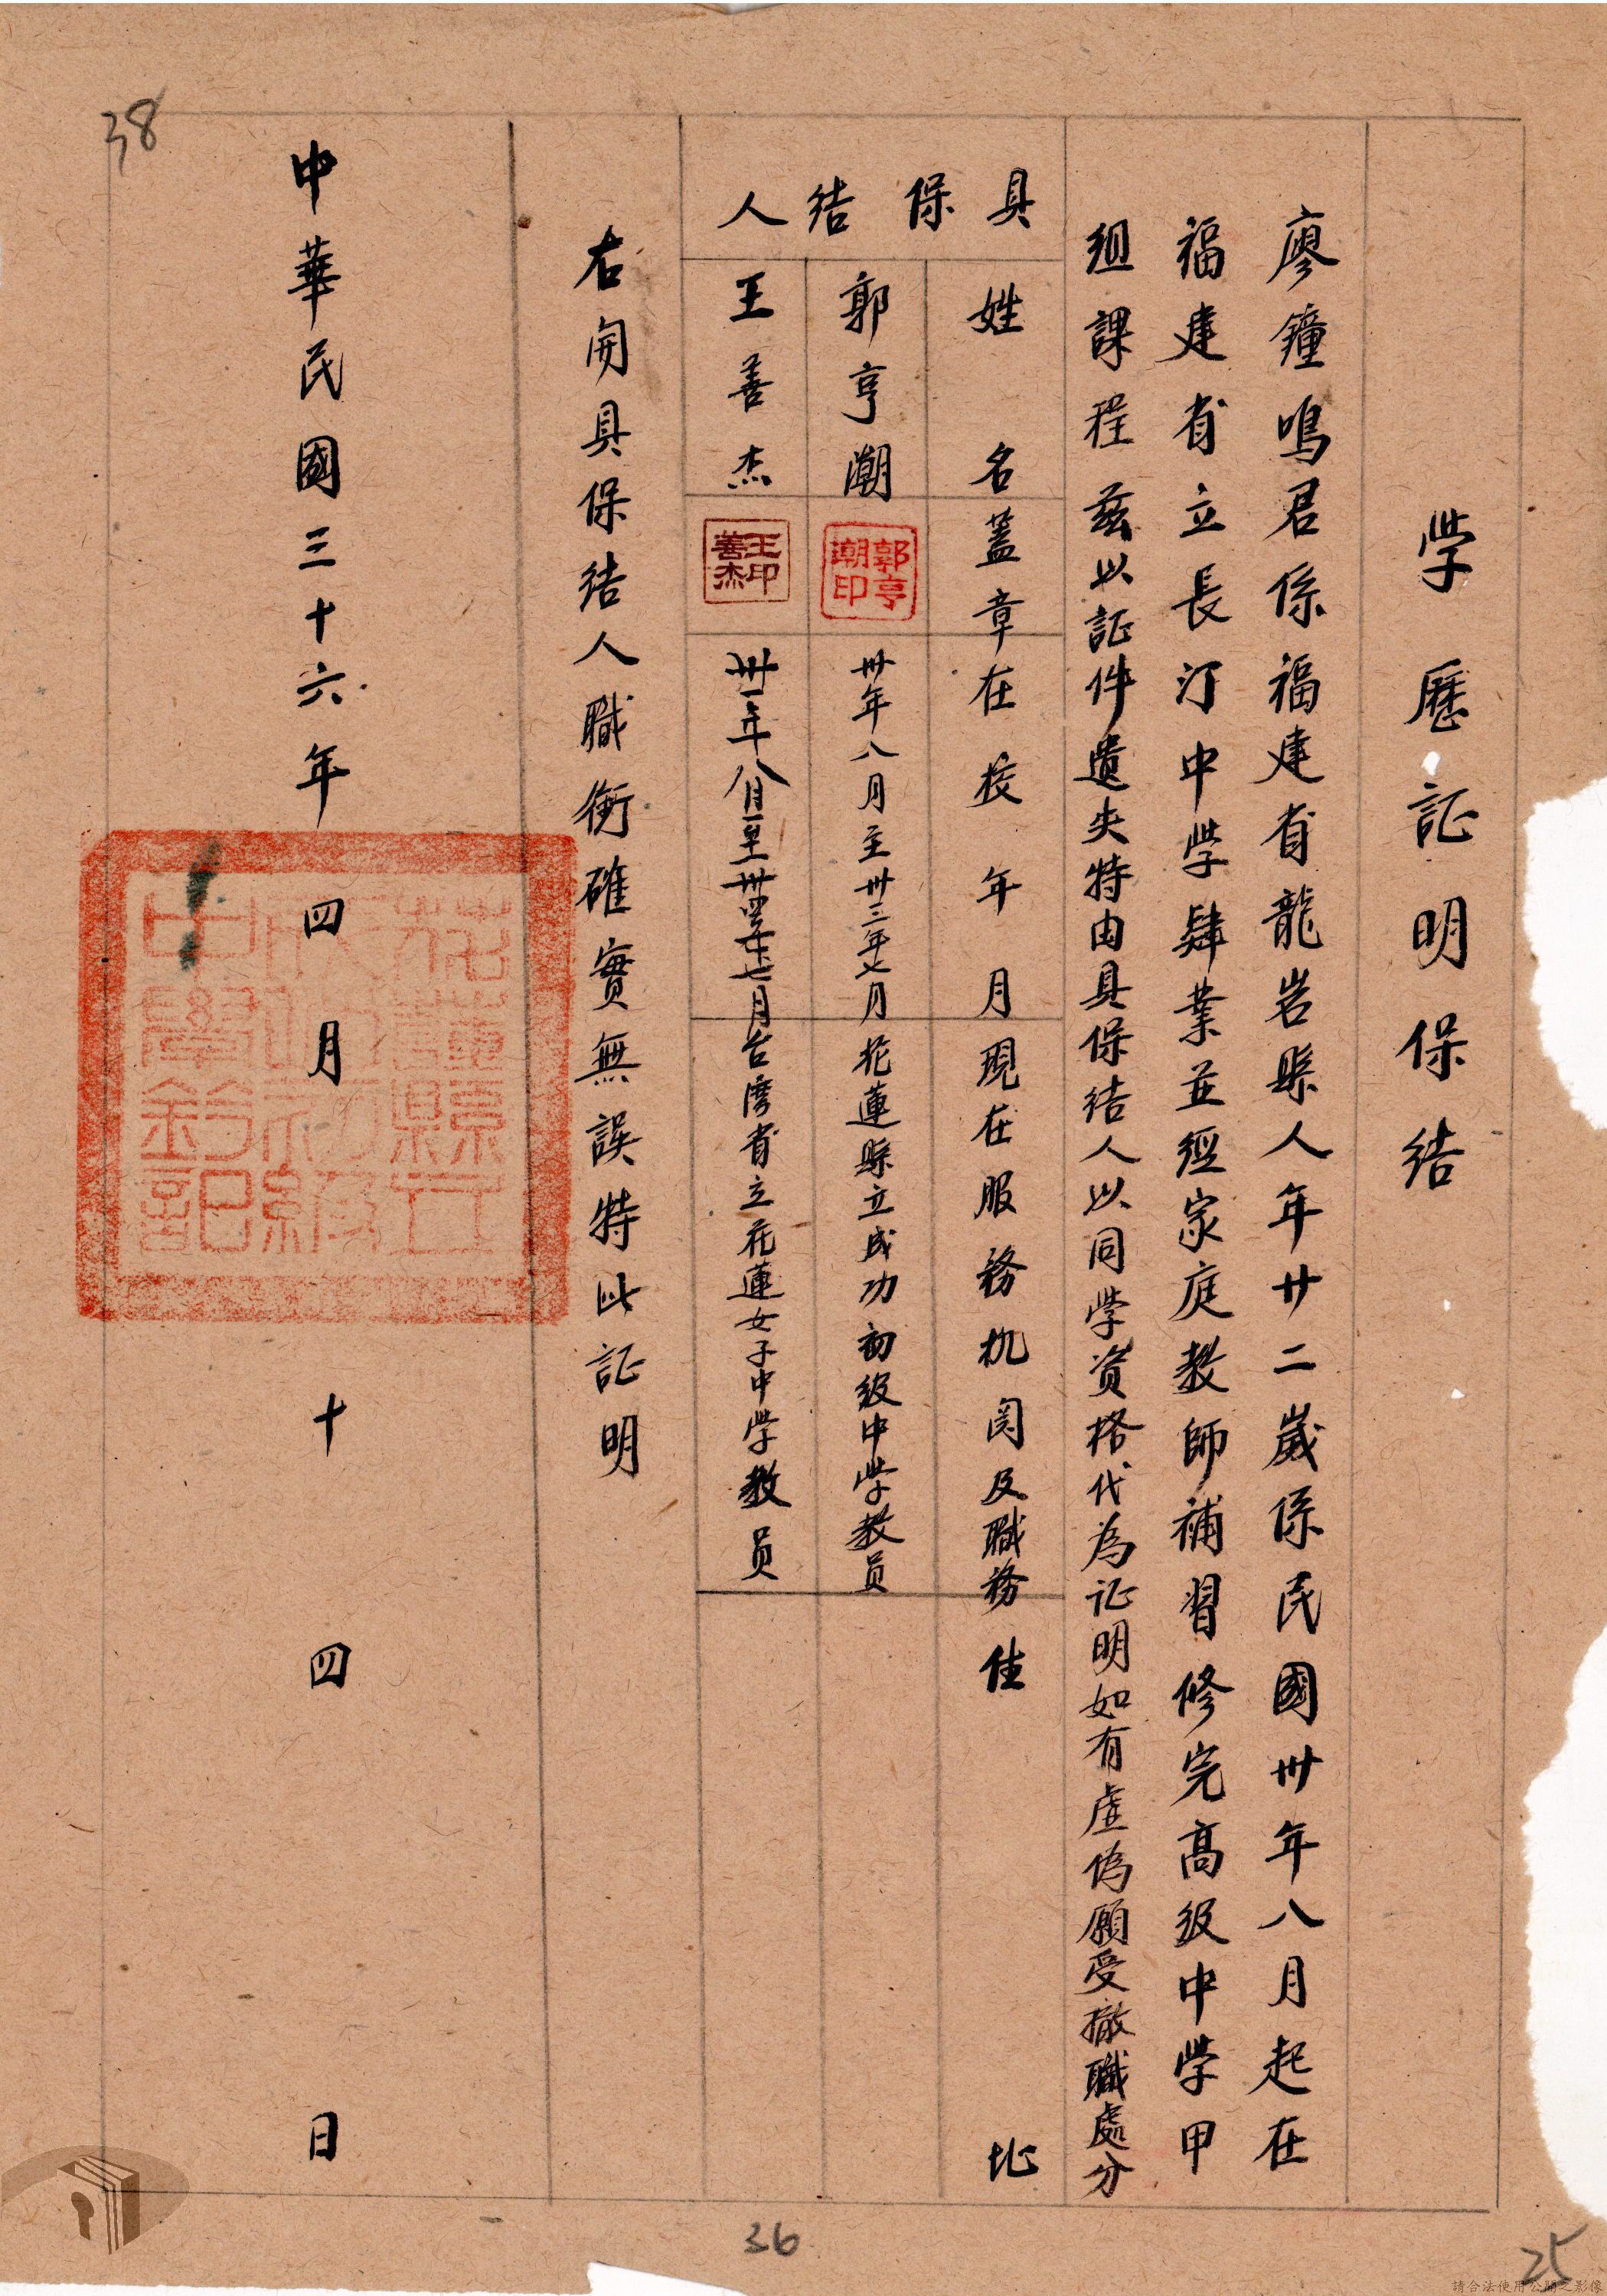 学歷証明保结
廖鐘鳴君係福建省龍岩縣人年廿二歲係民國卅年八月起在
福建省立長汀中学肄業並經家庭教師補習修完高级中学甲
组課程兹以証件遺失特由具保结人以同学資格代为证明如有虚偽願受撤職處分
具保结人
姓名 蓋章 在校年月 現在服務机関及職務 住址
郭亨潮 郭亨潮印 卅年八月至卅三年七月 花蓮縣立成功初级中学教员
王善杰 王善杰印 卅一年八月至卅四年七月 台湾省立花蓮女子中学教员
右開具保结人職衡確實無誤特此証明
中華民國三十六年四月十四日
花蓮縣立
中學鈐記
38
36
25
請合法使用公開之影像